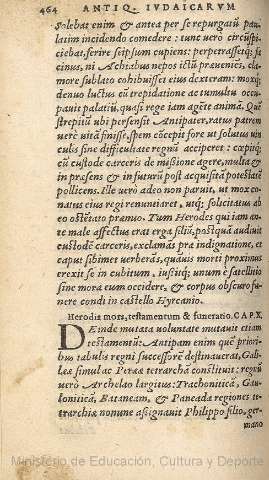 464 ANTIQ. IVDAICARVM
Solebat enim & antea per se repurgatũ pau
latim incidendo comedere: tunc verò circũspi
ciebat, ferire seipsum cupiens: perperassetq́; fa
cinus, ni Achiabus nepos ictũ præueniẽs, cla
more sublato cohibuisset eius dexteram: moxq́;
denuo luctus cũ trepidatione ac tumultu occu
pat palatiũ, quasi rege iam agẽte animã. Quẽ
strepitũ vbi persensit Antipater, ratus patrem
verè vitã finisse, spem cõcepit fore vt solutus vin
culis sine difficultate regnũ acciperet: cæpitq́;
cũ custode carceris de missione agere, multa &
in præsens & in futurũ post acquisitã potestatẽ
pollicens. Ille verò adeo non paruit, vt mox co
natus eius regi renunciaret, vtq́; solicitatus ab
eo ostẽtato præmio. Tum Herodes qui iam an
te male affectus erat erga filiũ, postquã audiuit
custodẽ carceris, exclamãs præ indignatione, et
caput sibimet verberãs, quãuis morti proximus
erexit se in cubitum, iussitq́; vnum è satellitio
sine mora eum occidere, & corpus obscuro fu-
nere condi in castello Hyrcanio.
Herodis mors, testamentum & funeratio. CAP. X.
DEinde mutata voluntate mutauit etiam
testamentũ: Antipam enim quẽ priori-
bus tabulis regni successorẽ destinauerat, Gali-
leæ simul ac Petreæ tetrarchã constituit: regnũ
verò Archelao largitus: Trachoniticã, Gau-
loniticã, Bataneam, & Paneada regiones te-
trarchiæ nomine assignauit Philippo filio, ger-
mano
Ministerio de Educación, Cultura y Deporte